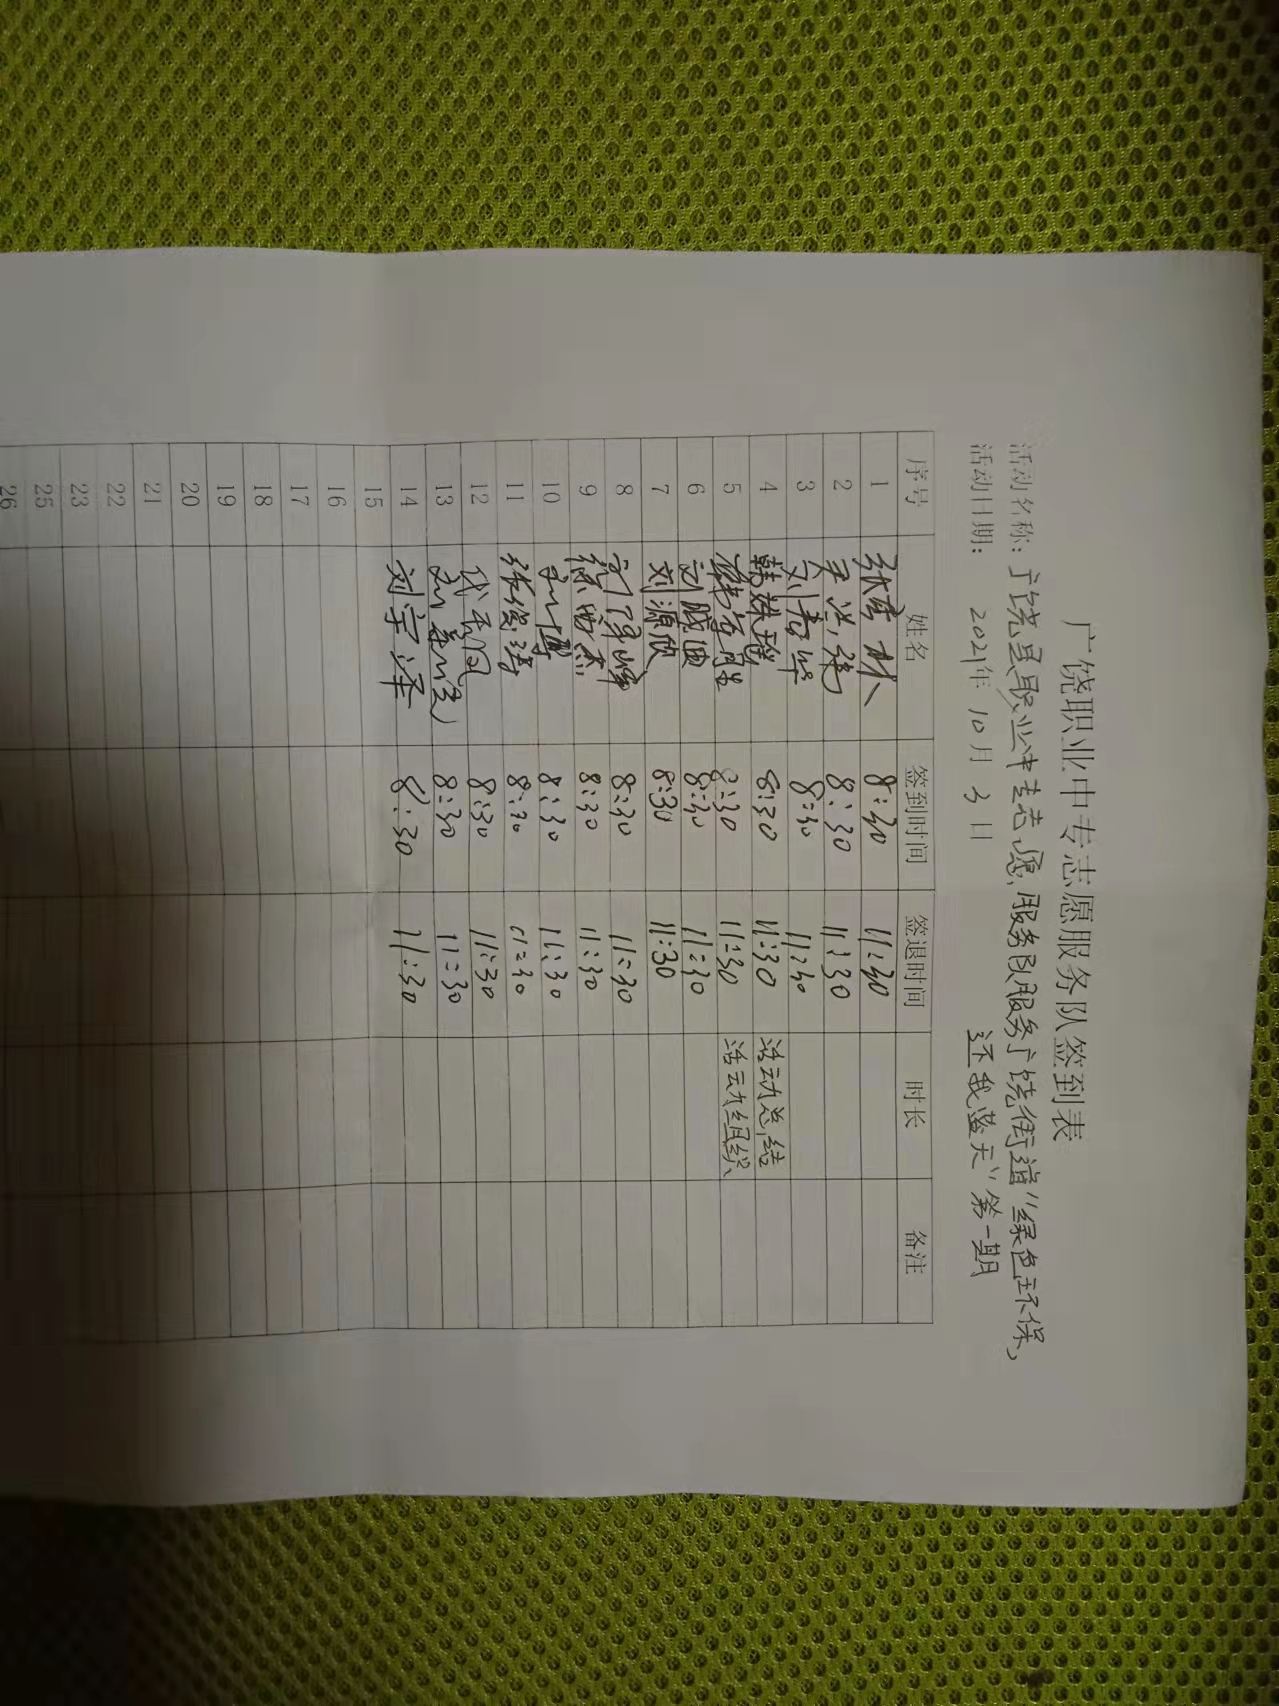 广饶职业中专志愿服务队签到表
活动名称：广饶县职业中专志愿服务队服务广饶街道“绿色环保，
还我蓝天”第一期
活动日期： 2021年 10月 3日
序号 姓名 签到时间 签退时间 时长 备注
1 8:30 11:30
2 8:30 11:30
3 8:30 11:30
4 8:30 11:30 活动总结
5 8:30 11:30 活动组织
6 8:30 11:30
7 刘源欣 8:30 11:30
8 8:30 11:30
9 8:30 11:30
10 8:30 11:30
11 8:30 11:30
12 8:30 11:30
13 8:30 11:30
14 刘宇泽 8:30 11:30
15
16
17
18
19
20
21
22
23
24
25
26